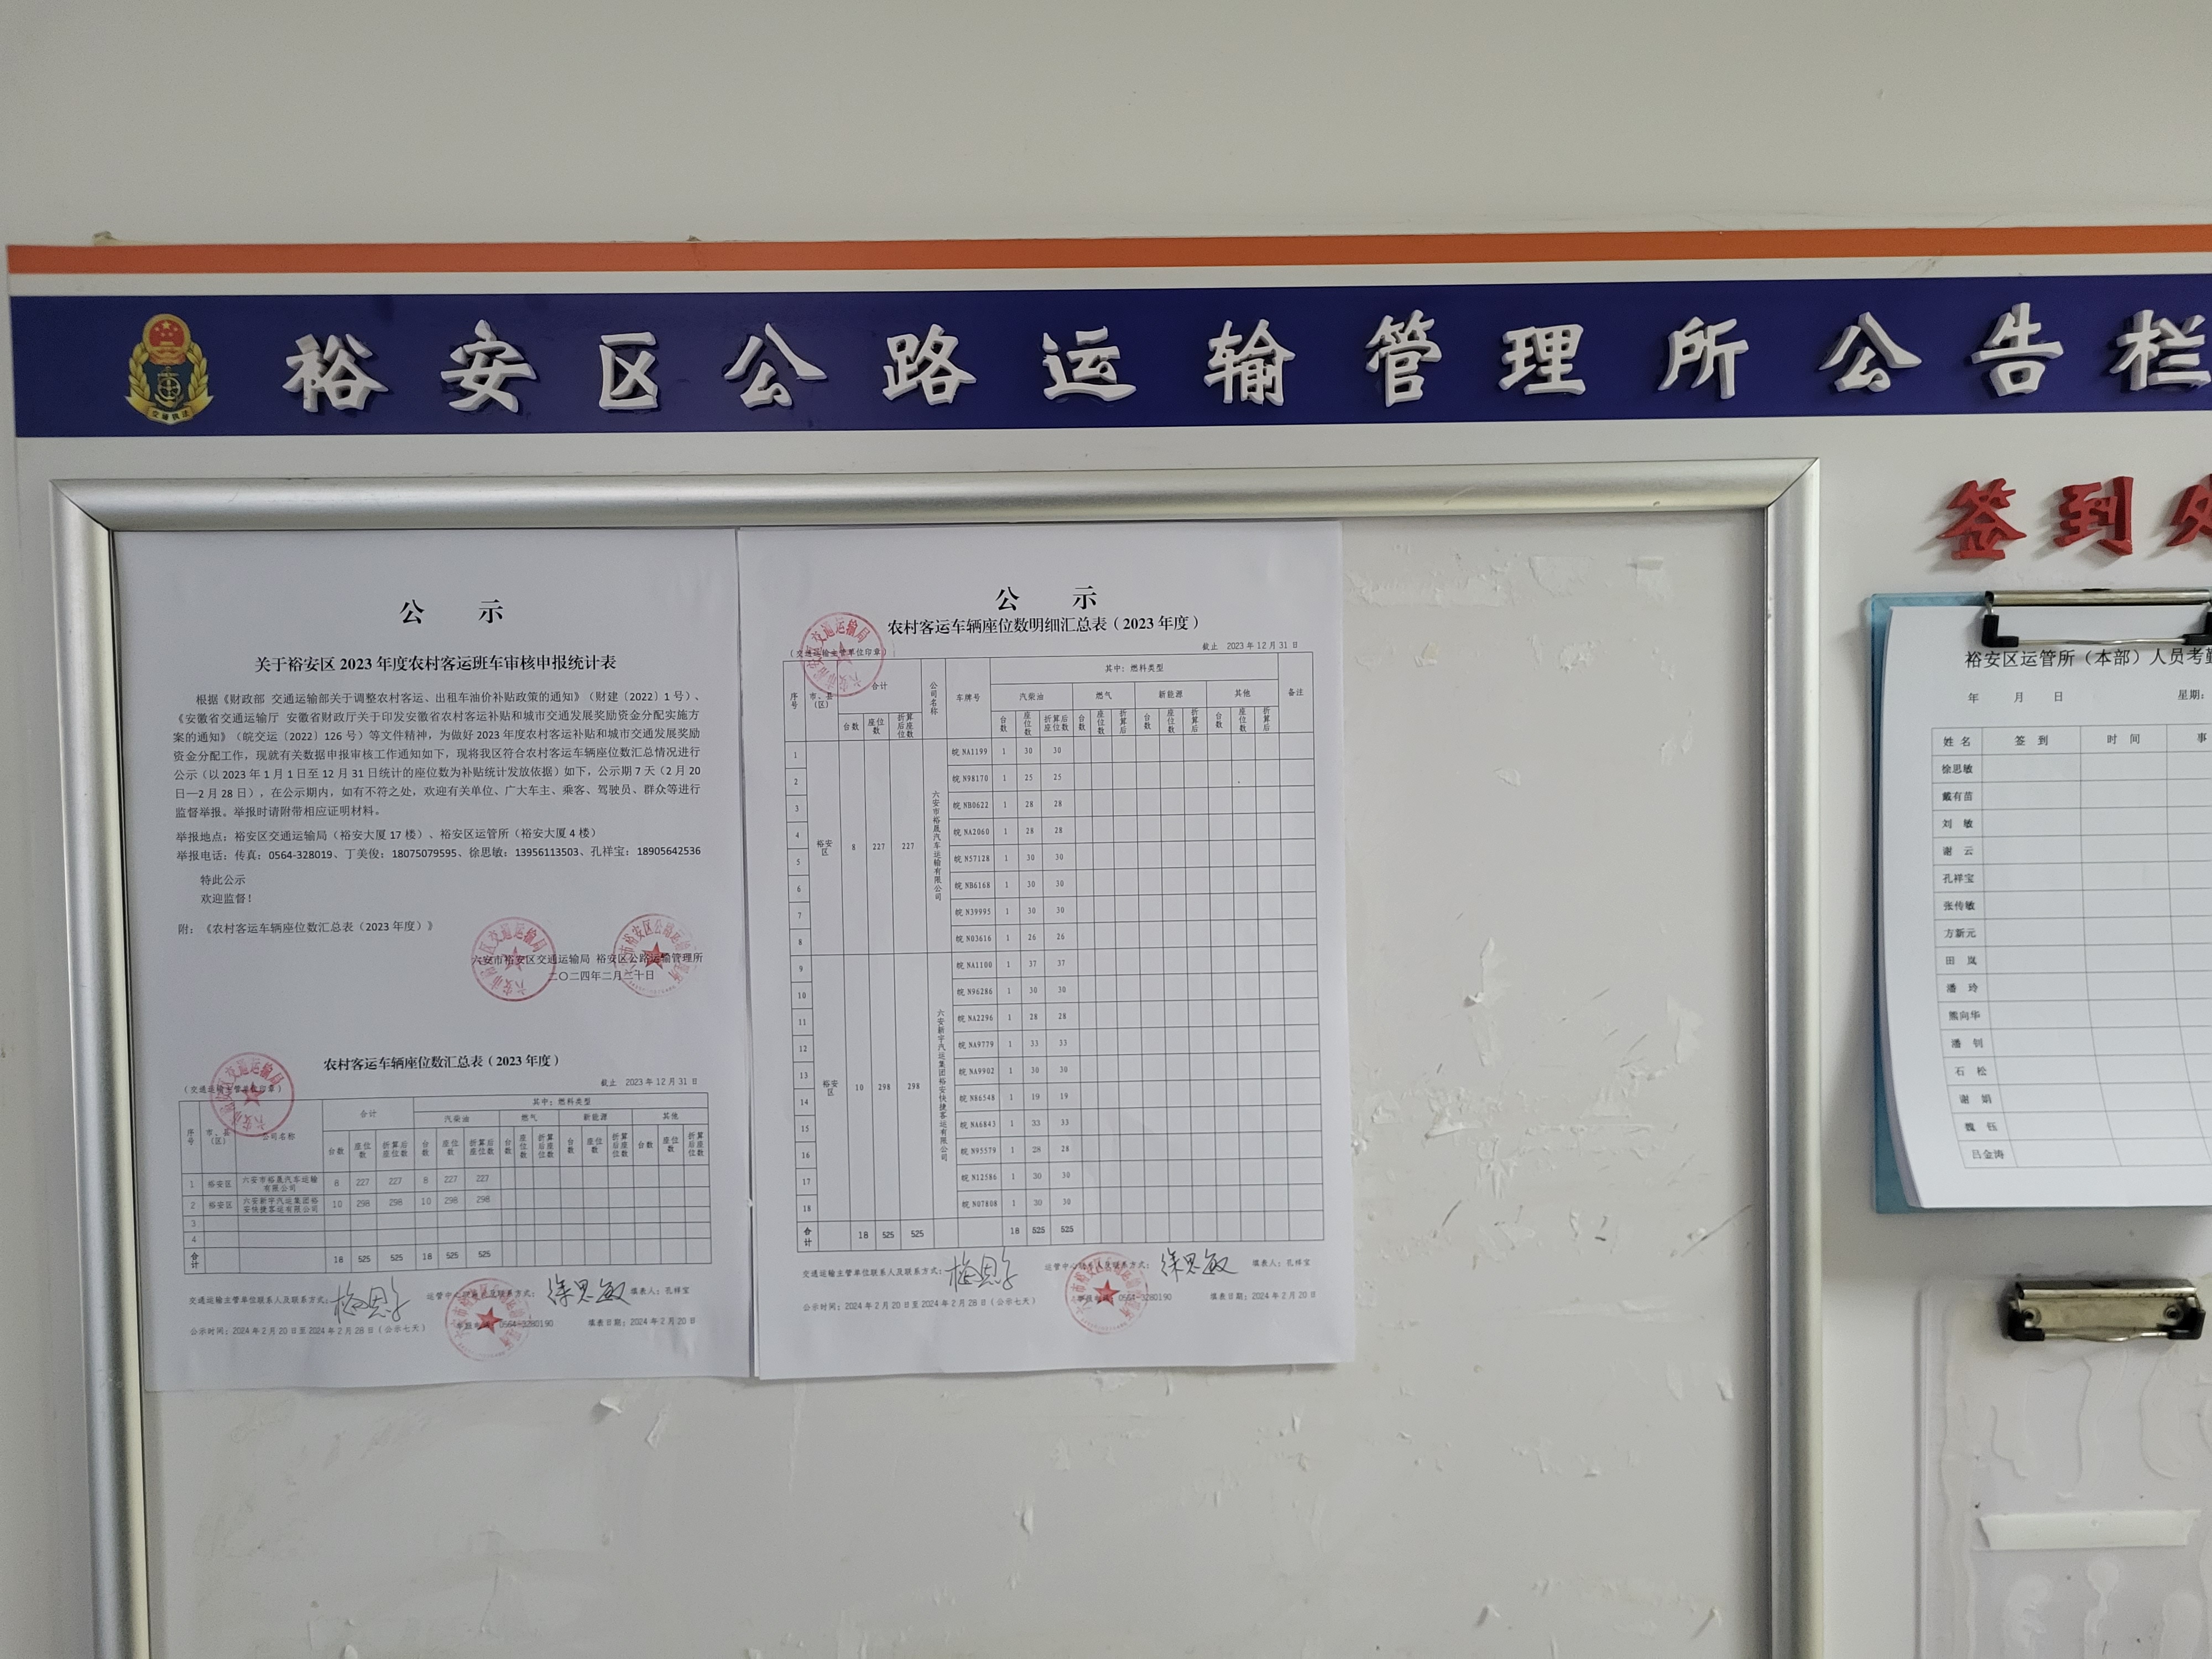 裕安区公路运输管理所公告栏
交通执法
公 示
关于裕安区 2023 年度农村客运班车审核申报统计表
根据《财政部 交通运输部关于调整农村客运、出租车油价补贴政策的通知》（财建〔2022〕1 号）、
《安徽省交通运输厅 安徽省财政厅关于印发安徽省农村客运补贴和城市交通发展奖励资金分配实施方
案的通知》（皖交运〔2022〕126 号）等文件精神，为做好 2023 年度农村客运补贴和城市交通发展奖励
资金分配工作，现就有关数据申报审核工作通知如下，现将我区符合农村客运车辆座位数汇总情况进行
公示（以 2023 年 1 月 1 日至 12 月 31 日统计的座位数为补贴统计发放依据）如下，公示期 7 天（2 月 20
日—2 月 28 日），在公示期内，如有不符之处，欢迎有关单位、广大车主、乘客、驾驶员、群众等进行
监督举报。举报时请附带相应证明材料。
举报地点：裕安区交通运输局（裕安大厦 17 楼）、裕安区运管所（裕安大厦 4 楼）
举报电话：传真：0564-328019、丁美俊：18075079595、徐思敏：13956113503、孔祥宝：18905642536
特此公示
欢迎监督！
附：《农村客运车辆座位数汇总表（2023 年度）》
六安市裕安区交通运输局 裕安区公路运输管理所
二〇二四年二月二十日
农村客运车辆座位数汇总表（2023 年度）
（交通运输主管单位印章） 截止 2023 年 12 月 31 日
序号 市、县（区） 公司名称 合计 其中：燃料类型
汽柴油 燃气 新能源 其他
台数 座位数 折算后座位数 台数 座位数 折算后座位数 台数 座位数 折算后座位数 台数 座位数 折算后座位数 台数 座位数 折算后座位数
1 裕安区 六安市裕晟汽车运输有限公司 8 227 227 8 227 227
2 裕安区 六安新宇汽运集团裕安快捷客运有限公司 10 298 298 10 298 298
3
4
合计 18 525 525 18 525 525
交通运输主管单位联系人及联系方式： 运管中心联系人及联系方式：徐思敏 填表人：孔祥宝
公示时间：2024 年 2 月 20 日至 2024 年 2 月 28 日（公示七天） 举报电话：0564-3280190 填表日期：2024 年 2 月 20 日
公 示
农村客运车辆座位数明细汇总表（2023 年度）
（交通运输主管单位印章） 截止 2023 年 12 月 31 日
序号 市、县（区） 合计 公司名称 车牌号 其中：燃料类型 备注
汽柴油 燃气 新能源 其他
台数 座位数 折算后座位数 台数 座位数 折算后座位数 台数 座位数 折算后 台数 座位数 折算后 台数 座位数 折算后
裕安区 8 227 227 六安市裕晟汽车运输有限公司
1 皖 NA1199 1 30 30
2 皖 N98170 1 25 25
3 皖 NB0622 1 28 28
4 皖 NA2060 1 28 28
5 皖 N57128 1 30 30
6 皖 NB6168 1 30 30
7 皖 N39995 1 30 30
8 皖 N03616 1 26 26
裕安区 10 298 298 六安新宇汽运集团裕安快捷客运有限公司
9 皖 NA1100 1 37 37
10 皖 N96286 1 30 30
11 皖 NA2296 1 28 28
12 皖 NA9779 1 33 33
13 皖 NA9902 1 30 30
14 皖 N86548 1 19 19
15 皖 NA6843 1 33 33
16 皖 N95579 1 28 28
17 皖 N12586 1 30 30
18 皖 N07808 1 30 30
合计 18 525 525 18 525 525
交通运输主管单位联系人及联系方式： 运管中心联系人及联系方式：徐思敏 填表人：孔祥宝
公示时间：2024 年 2 月 20 日至 2024 年 2 月 28 日（公示七天） 举报电话：0564-3280190 填表日期：2024 年 2 月 20 日
签到处
裕安区运管所（本部）人员考勤
年 月 日 星期：
姓 名 签 到 时 间 事
徐思敏
戴有苗
刘 敏
谢 云
孔祥宝
张传敏
方新元
田 岚
潘 玲
熊向华
潘 钊
石 松
谢 娟
魏 钰
吕金涛